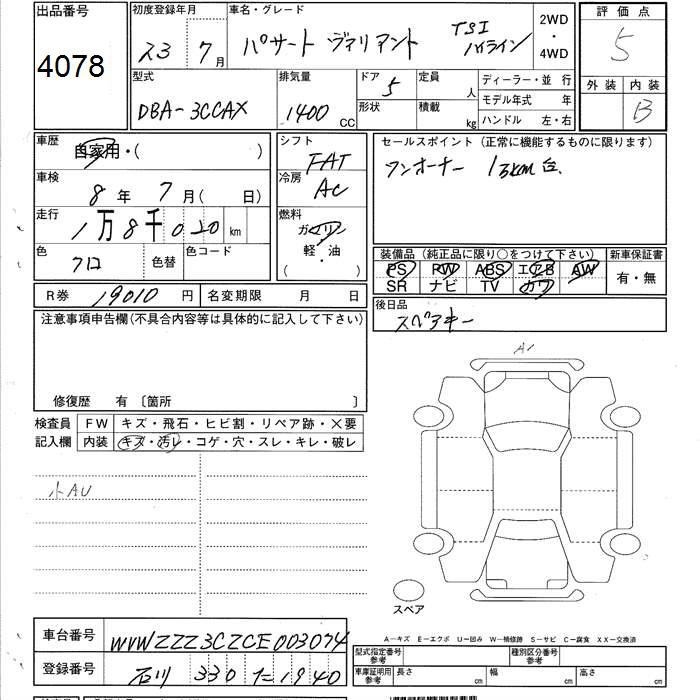 出品番号
4078
初度登録年月
23年 7月
車名・グレード
パサート ヴァリアント TSI ハイライン
2WD
・
4WD
評価点
5
外装 内装
B
型式
DBA-3CCAX
排気量
1400 CC
ドア
5
形状
定員
人
積載
kg
ディーラー・並行
モデル年式 年
ハンドル 左・右
車歴
自家用・( )
車検
8年 7月( 日)
走行
1万8千020km
色
クロ
色替
色コード
シフト
FAT
冷房
AC
燃料
ガソリン
軽・油
( )
セールスポイント(正常に機能するものに限ります)
ワンオーナー 13km台
装備品(純正品に限り○をつけて下さい)
新車保証書
PS PW ABS エアB AW
SR ナビ TV カワ
有・無
R券 19010円
名変期限 月 日
後日品
スペアキー
注意事項申告欄(不具合内容等は具体的に記入して下さい)
修復歴 有〔箇所 〕
検査員記入欄
FW キズ・飛石・ヒビ割・リペア跡・×要
内装 キズ・汚レ・コゲ・穴・スレ・キレ・破レ
小AU
A1
スペア
車台番号
WVWZZZ3CZCE003074
登録番号
石川 330 た 1940
A-キズ E-エクボ U-凹み W-補修跡 S-サビ C-腐食 XX-交換済
型式指定番号参考
種別区分番号参考
車庫証明用参考
長さ cm 幅 cm 高さ cm